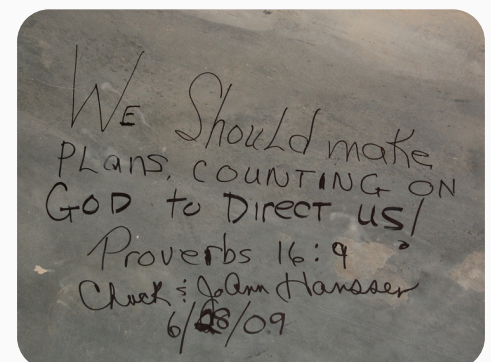 WE Should make
PLans, COUNTING ON
GOD to DIRECT US!
Proverbs 16:9
Chuck & JoAnn Hansser
6/28/09